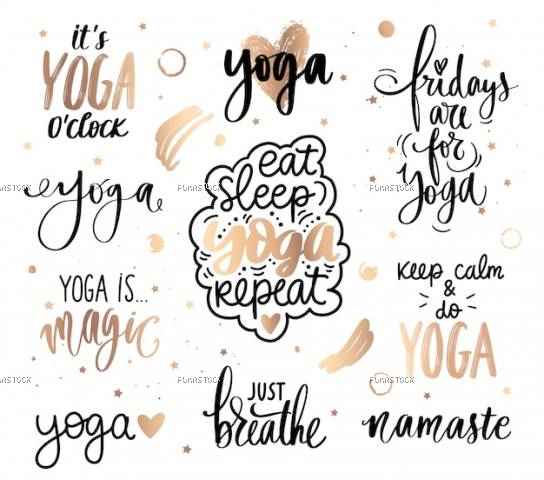 it's
YOGA
O'CLOCK
yoga
fridays
are
for
yoga
yoga
eat
sleep
yoga
repeat
YOGA IS...
magic
keep calm
&
do
YOGA
yoga
JUST
breathe
namaste
FUNSTOCK
FUNSTOCK
FUNSTOCK
FUNSTOCK